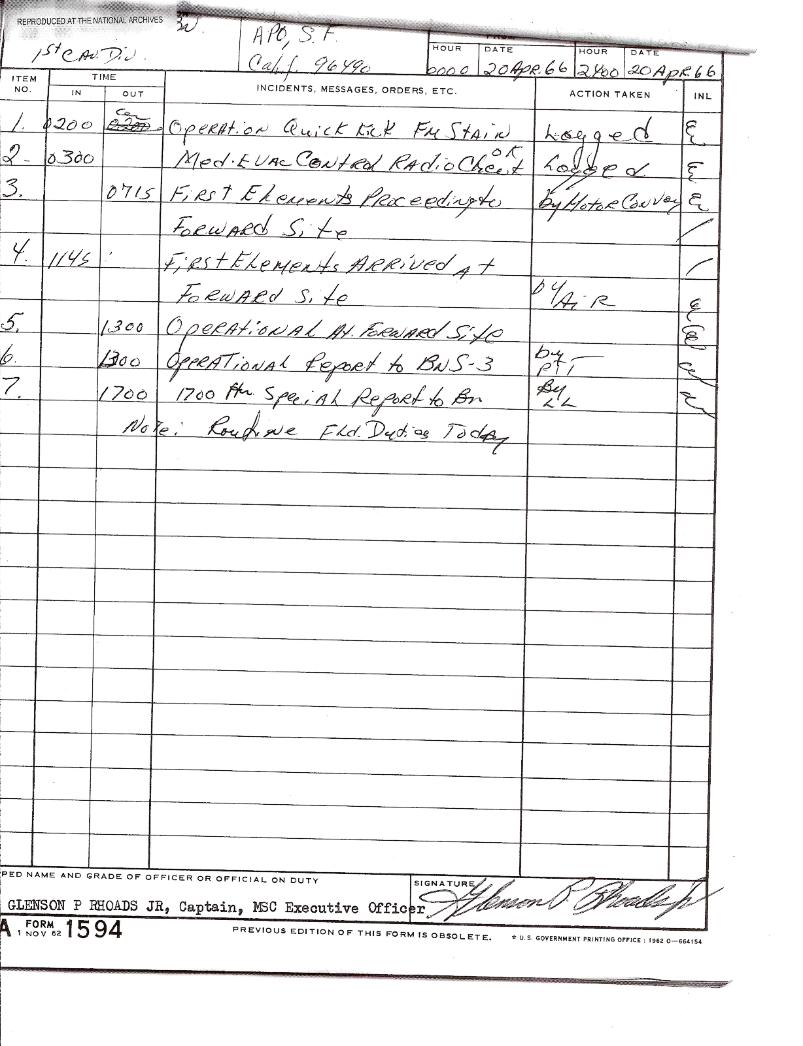 REPRODUCED AT THE NATIONAL ARCHIVES
1st CAV. DIV
APO, S.F.
Calif. 96490
HOUR DATE HOUR DATE
0000 20 Apr. 66 2400 20 Apr. 66
ITEM NO. TIME IN OUT INCIDENTS, MESSAGES, ORDERS, ETC. ACTION TAKEN INL
1. 0200 OPERATION QUICK KICK Fm STAIN Logged
2. 0300 Med. EVAC CONTROL RADIO Check OK Logged
3. 0715 FIRST Elements Proceeding to by MOTOR Convoy
FORWARD Site
4. 1145 FIRST Elements ARRIVED At
FORWARD Site by AiR
5. 1300 OPERATIONAL At. FORWARD Site
6. 1300 OPERATIONAL Report to BN S-3 by
7. 1700 1700 Hr. Special Report to Bn By LL
Note: Routine Fld. Duties Today
PED NAME AND GRADE OF OFFICER OR OFFICIAL ON DUTY
SIGNATURE
GLENSON P RHOADS JR, Captain, MSC Executive Officer Glenson P. Rhoads Jr
A FORM 1 NOV 62 1594
PREVIOUS EDITION OF THIS FORM IS OBSOLETE.
* U.S. GOVERNMENT PRINTING OFFICE : 1962 O—664154